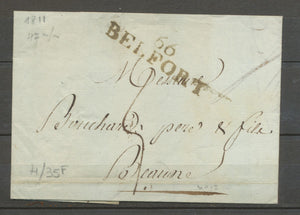 1811
66
BELFORT
Messieurs
Bouchard pere & fils
Beaune
4/35F